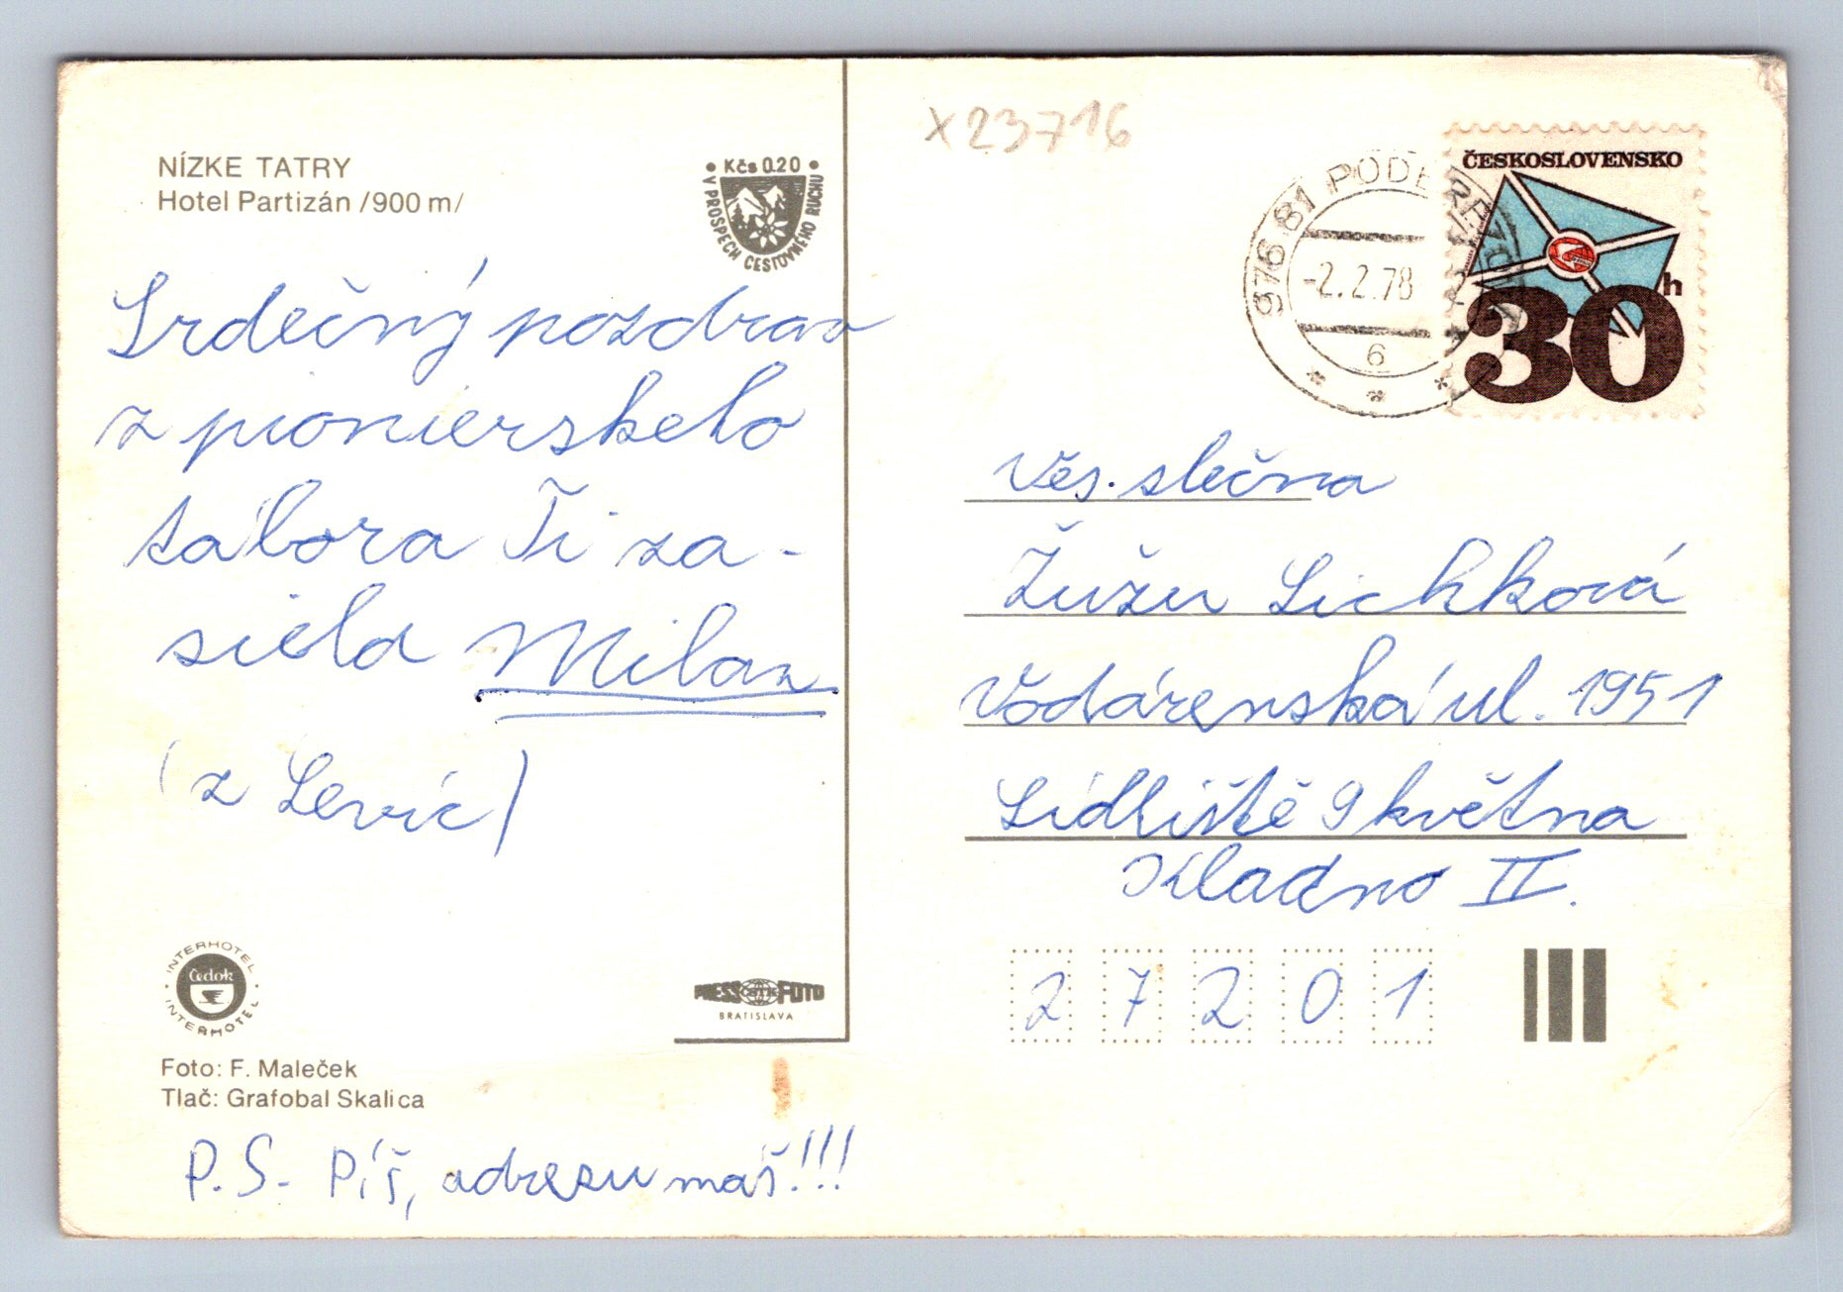 NÍZKE TATRY
Hotel Partizán /900 m/
• Kčs 0.20 •
V PROSPECH CESTOVNÉHO RUCHU
Srdečný pozdrav
z pionierskeho
tábora Ti za-
siela Milan
(z Levíc)
INTERHOTEL
Čedok
INTERHOTEL
PRESSFOTO
BRATISLAVA
Foto: F. Maleček
Tlač: Grafobal Skalica
P.S. Píš, adresu máš!!!
X23716
976 81 PODBREZOVÁ
-2. 2. 78
6
ČESKOSLOVENSKO
30h
Věs. slečna
Žužu Lichková
Vodárenská ul. 1951
Sídliště 9 května
Kladno II.
2 7 2 0 1